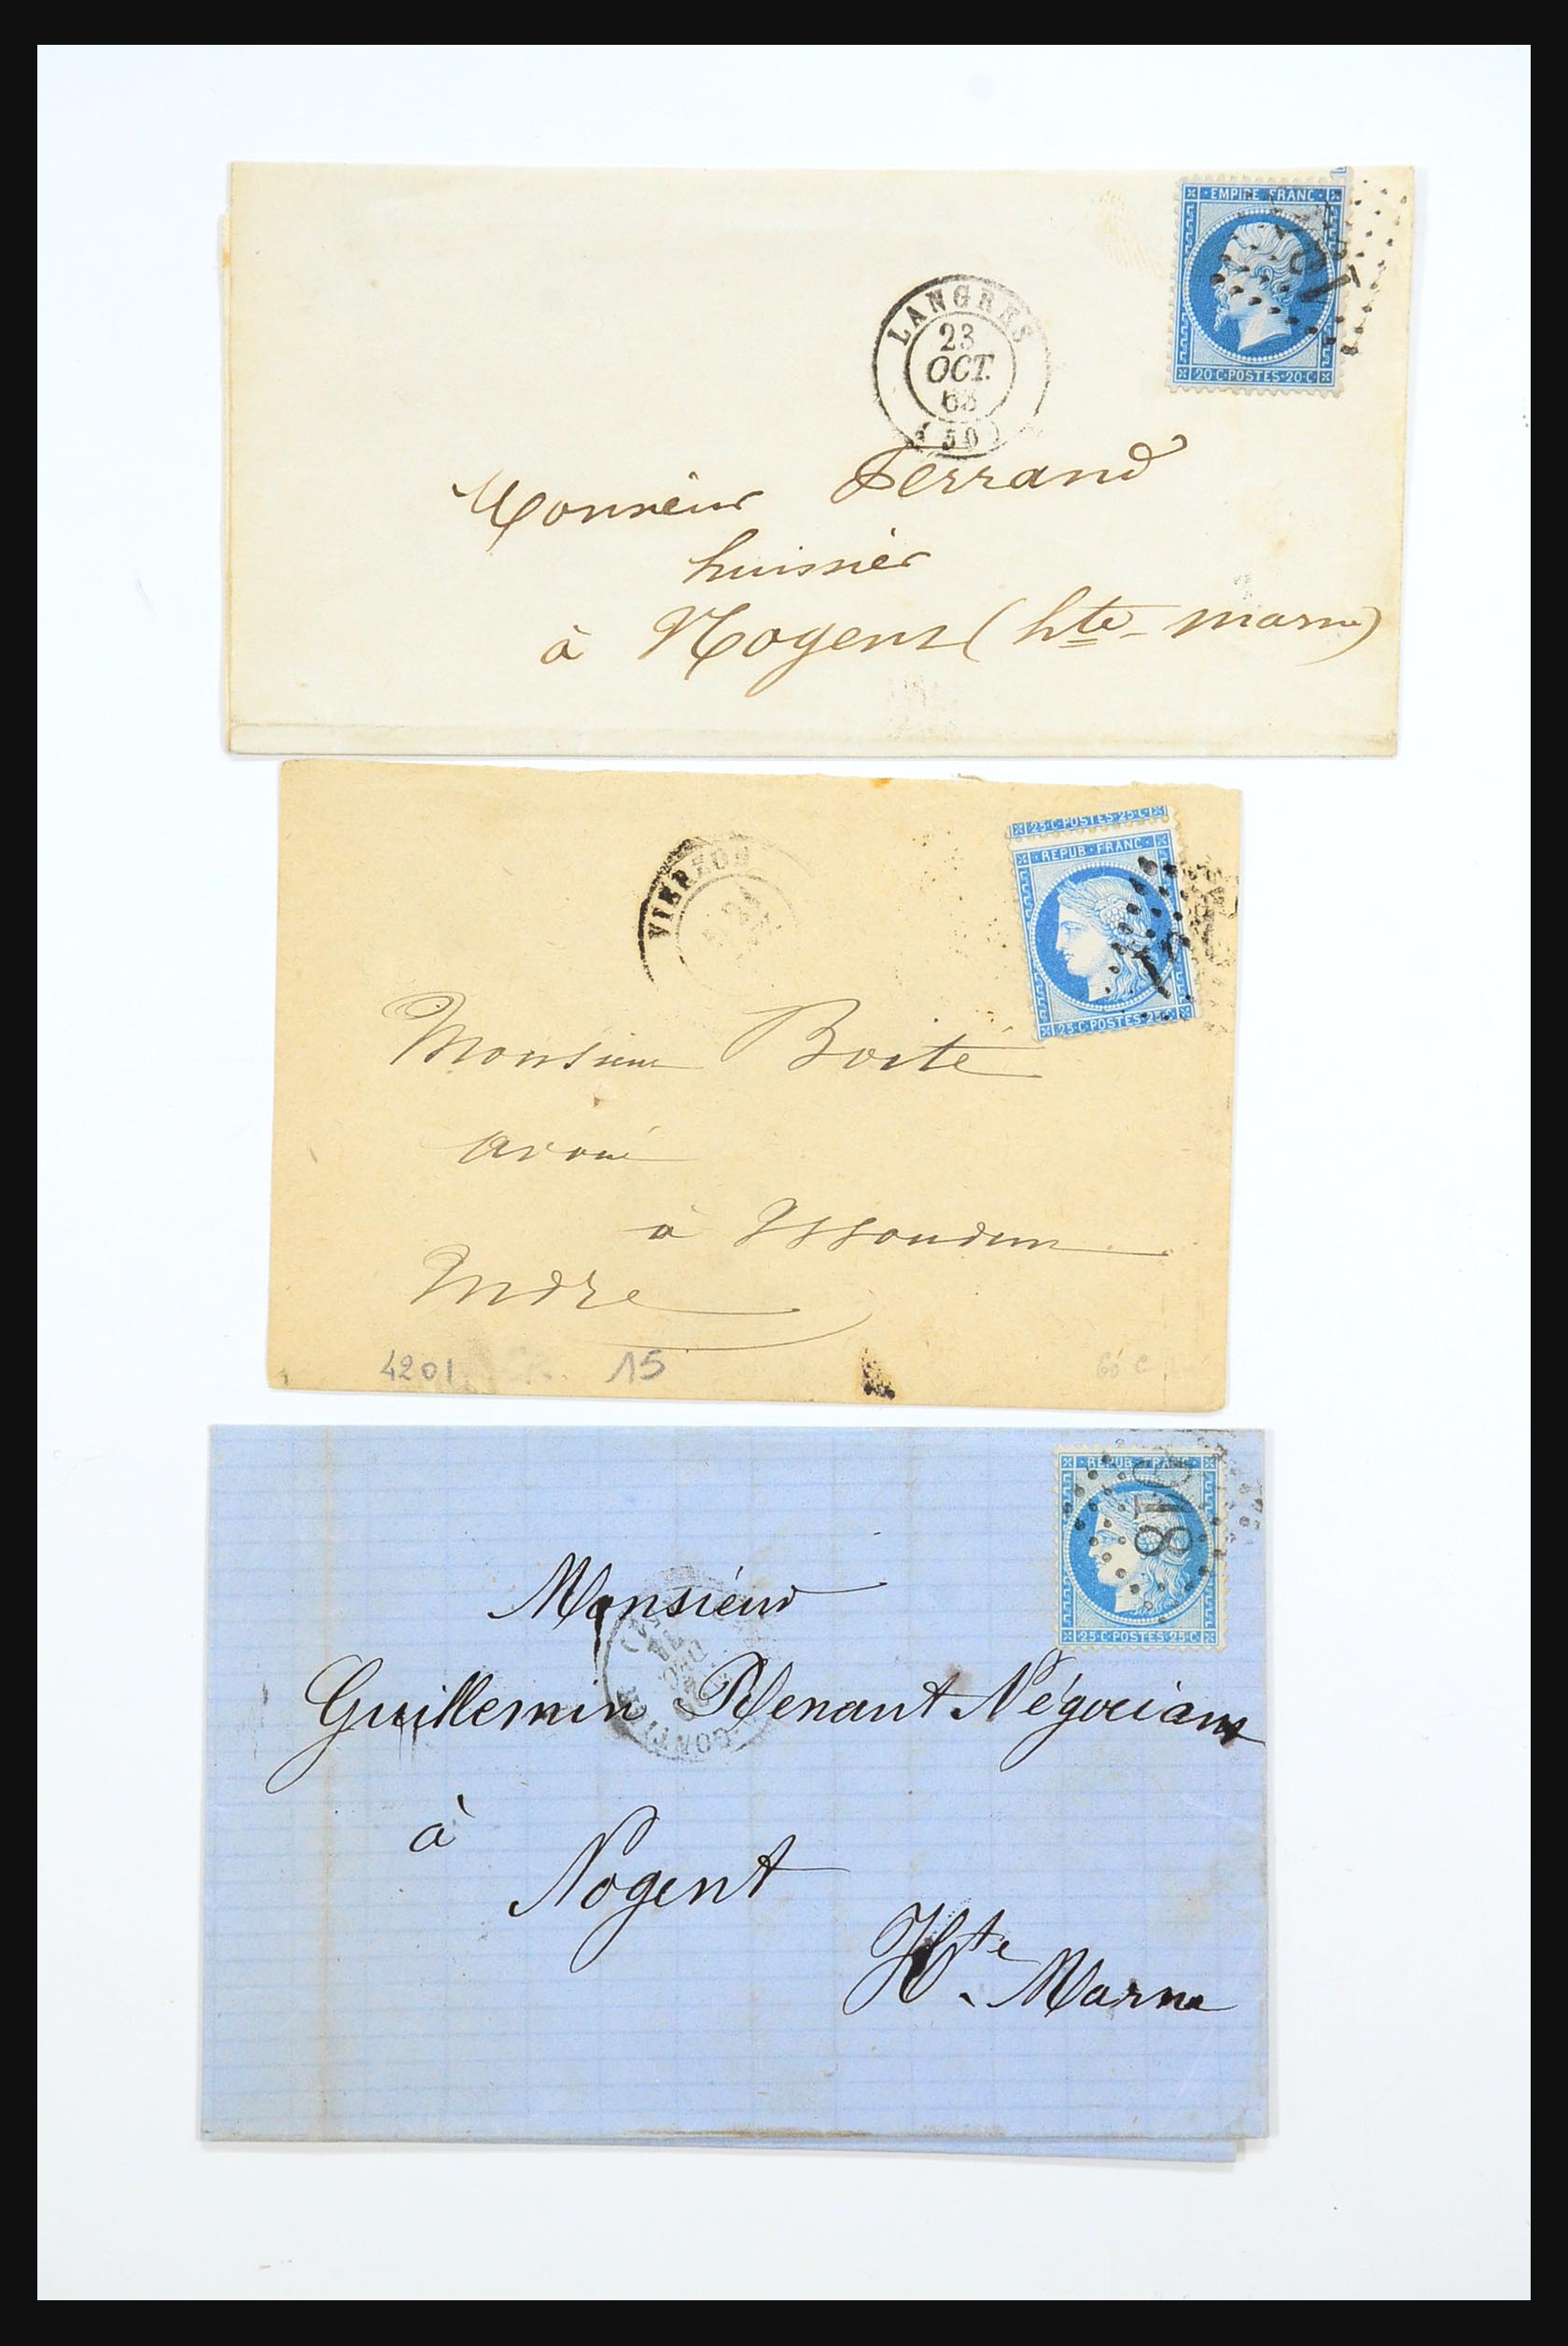 EMPIRE FRANC
20 C · POSTES · 20 C
LANGRES
23
OCT.
63
(50)
Monsieur Ferrand
huissier
à Nogent (hte marne)
25 · C · POSTES · 25 · C
REPUB · FRANC
25 · C · POSTES · 25 · C
VIERZON
Monsieur Boité
avoué
à Issoudun
Indre
4201
15
60 C
REPUB · FRANC
25 · C · POSTES · 25 · C
Monsieur
Guillemin Renaut Négociant
à
Nogent
Hte Marne